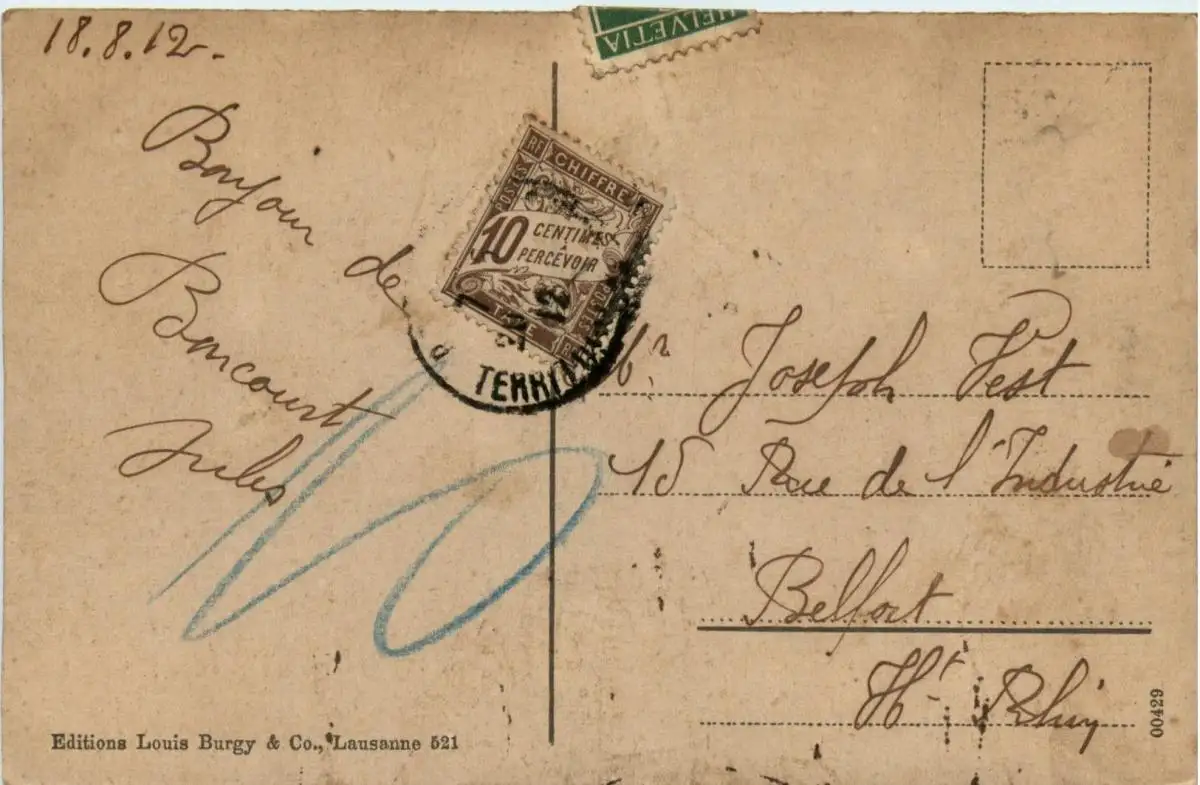 18.8.12.
HELVETIA
Bonjour de
Boncourt
Jules
RF
CHIFFRE
POSTES
10 CENTIMES
A
PERCEVOIR
TAXE
TERRIT
10
Mr Joseph Vest
15 Rue de l'Industrie
Belfort
Ht-Rhin
00429
Editions Louis Burgy & Co., Lausanne 521